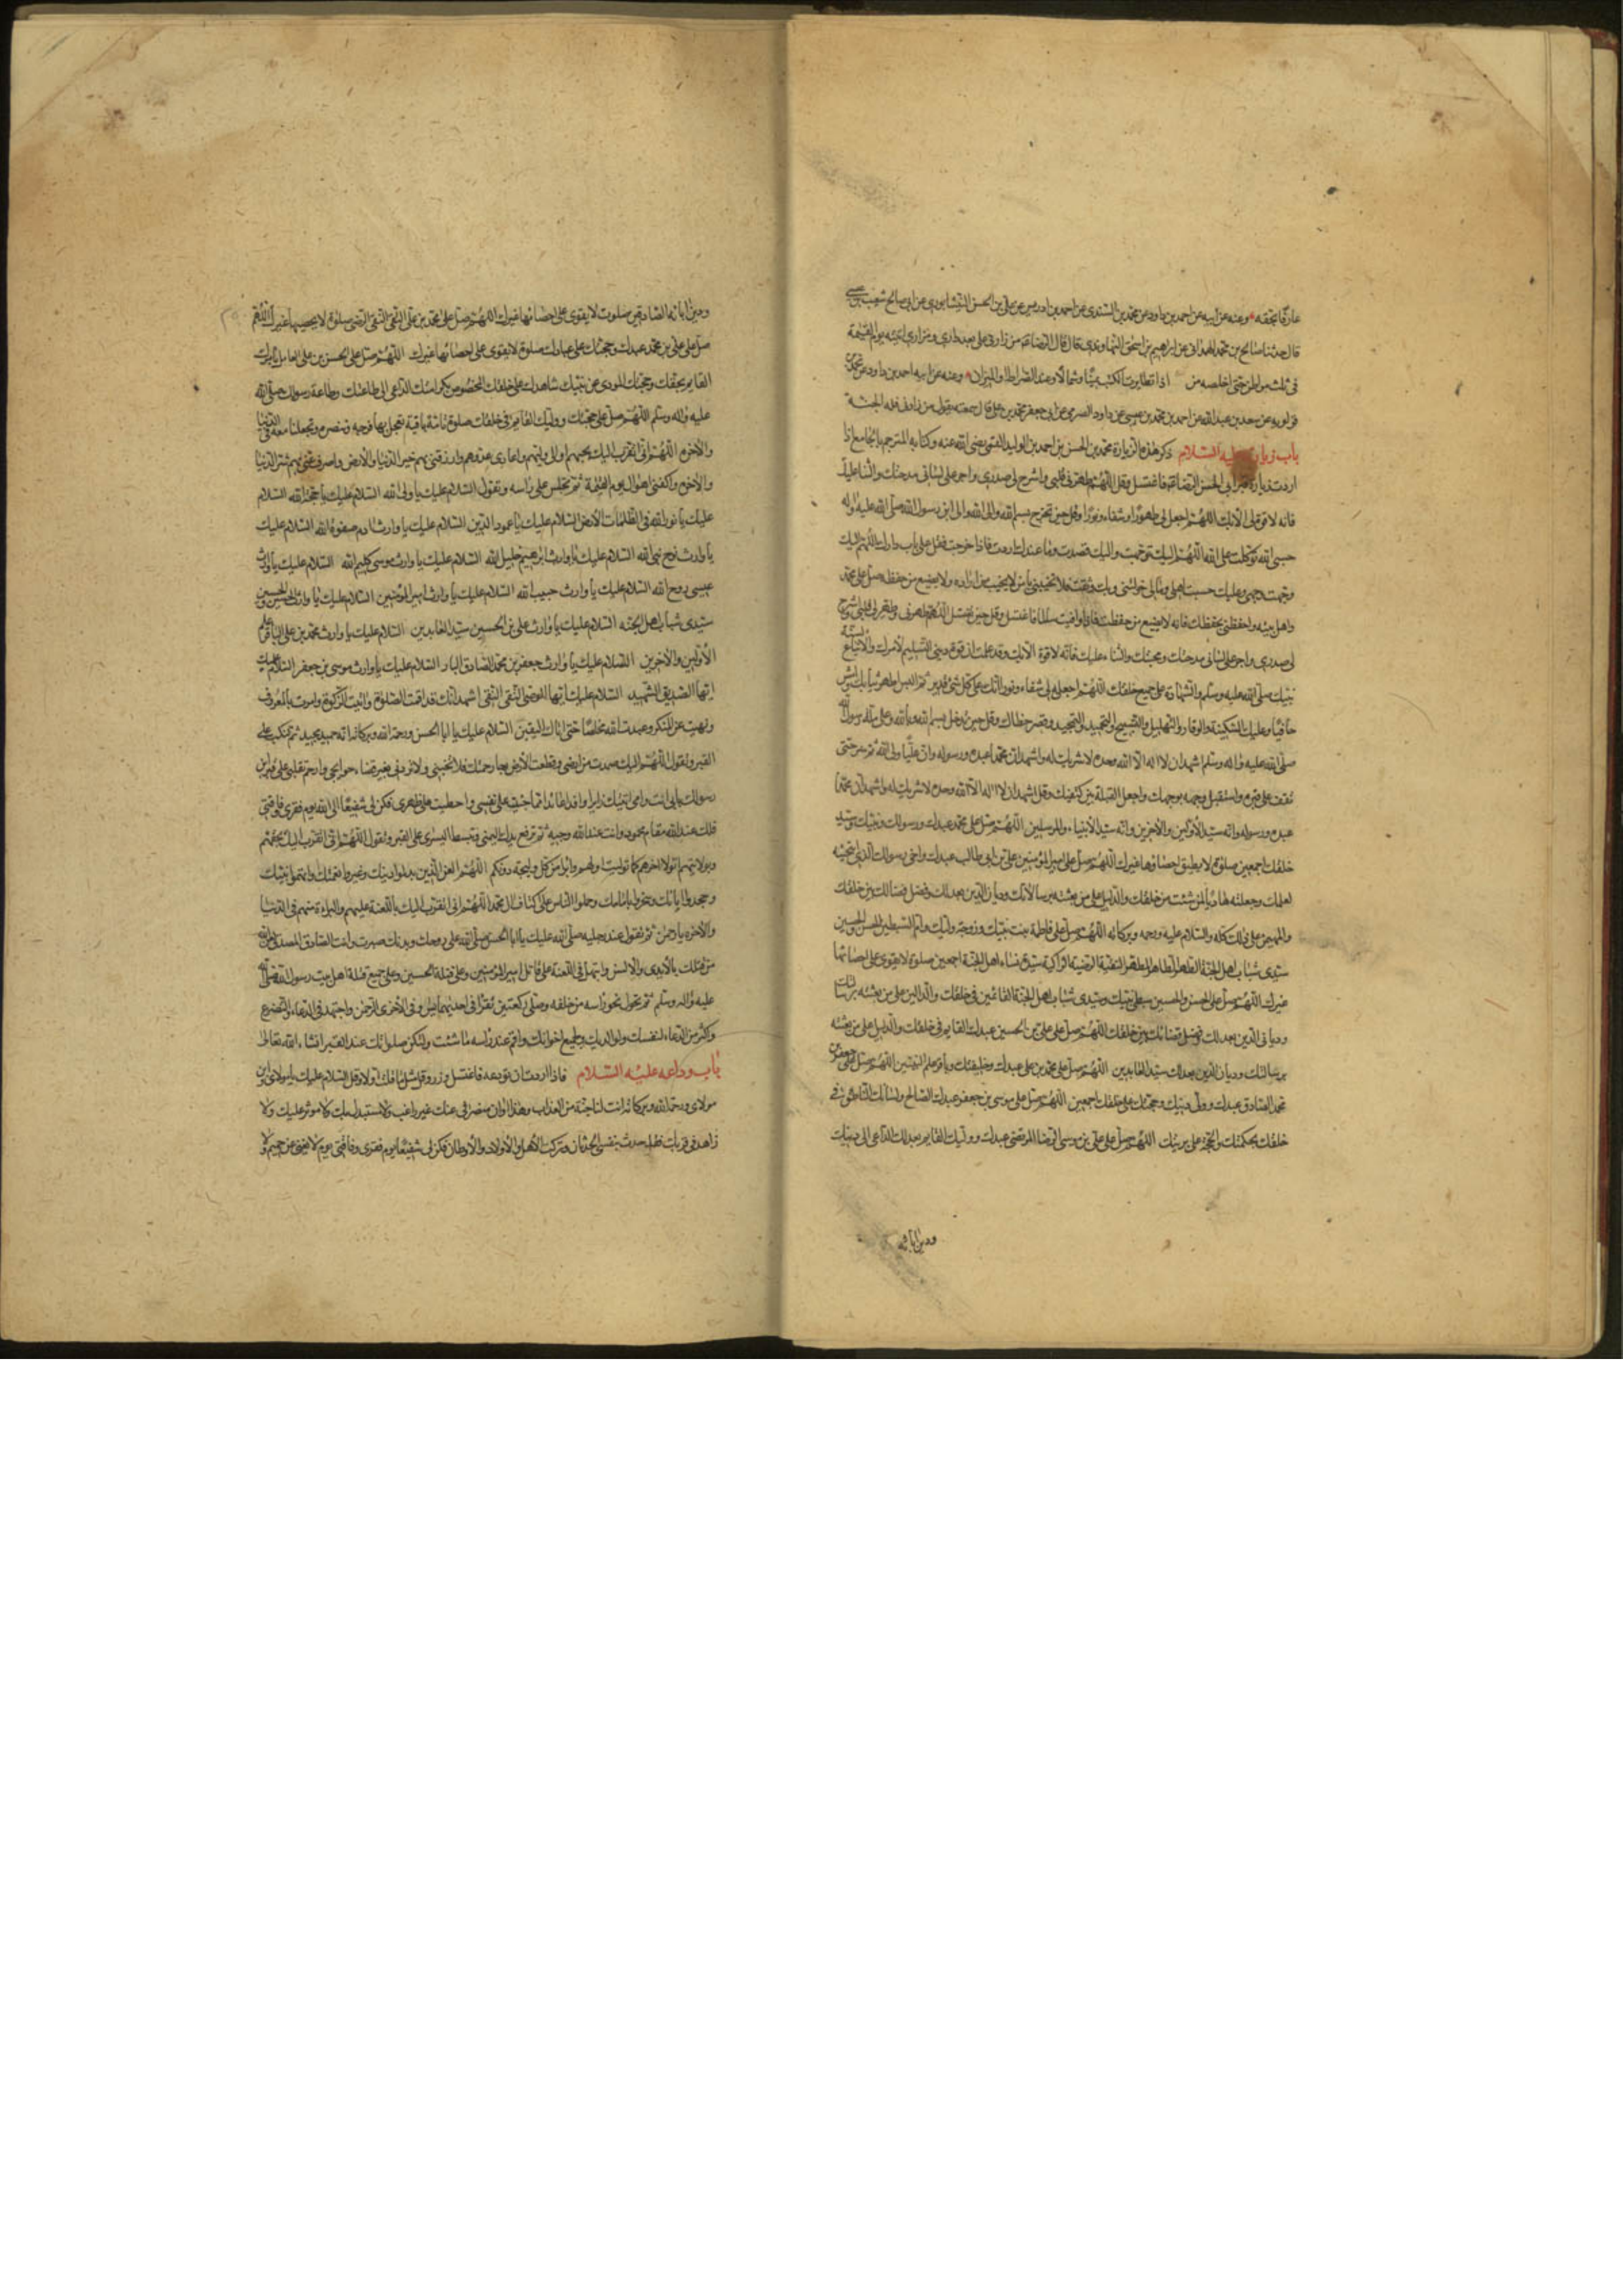 عارفا بحقه وعنه عن ابيه عن احمد بن داود عن محمد بن السندى عن احمد بن ادريس عن على بن الحسن النيشابورى عن ابى صالح شعيب بن عيسى
قال حدثنا صالح بن محمد الهمدانى عن ابراهيم بن اسحق النهاوندى قال قال الرضا من زارنى على بعد دارى ومزارى اتيته يوم القيمة
فى ثلث مواطن حتى اخلصه من اذا تطايرت الكتب يمينا وشمالا وعند الصراط والميزان وعنه عن ابيه احمد بن داود عن محمد بن
قولويه عن سعد بن عبد الله عن احمد بن محمد بن عيسى عن داود الصرمى عن ابى جعفر محمد بن على قال سمعته يقول من زار ابى فله الجنة
باب زيارته عليه السلام ذكر هذه الزيارة محمد بن الحسن بن احمد بن الوليد القمى رضى الله عنه وكتابه المترجم بالجامع اذا
اردت زيارة قبر ابى الحسن الرضا فاغتسل وقل اللهم طهرنى قلبى واشرح لى صدرى واجر على لسانى مدحتك والثناء عليك
فانه لا قوة الا بك اللهم اجعل لى طهورا وشفاء ونورا وقل حين تخرج بسم الله والى الله والى ابن رسول الله صلى الله عليه واله
حسبى الله توكلت على الله اللهم اليك توجهت واليك قصدت وما عندك اردت فاذا خرجت فقل على باب دارك اللهم اليك
وجهت وجهى وعليك خلفت اهلى ومالى وما خولتنى وبك وثقت فلا تخيبنى يا من لا يخيب من اراده ولا يضيع من حفظه صل على محمد
واهل بيته واحفظنى بحفظك فانه لا يضيع من حفظت فاذا وافيت سالما فاغتسل وقل حين تغتسل اللهم طهرنى وطهر لى قلبى واشرح
لى صدرى واجر على لسانى مدحتك ومحبتك والثناء عليك فانه لا قوة الا بك وقد علمت ان قوة دينى التسليم لامرك والاتباع لسنة
نبيك صلى الله عليه وسلم والشهادة على جميع خلقك اللهم اجعله لى شفاء ونورا انك على كل شئ قدير ثم البس اطهر ثيابك وامش
حافيا وعليك السكينة والوقار والتهليل والتسبيح والتحميد والتمجيد وقصر خطاك وقل حين تدخل بسم الله وبالله وعلى ملة رسول الله
صلى الله عليه واله وسلم اشهد ان لا اله الا الله وحده لا شريك له واشهد ان محمدا عبده ورسوله وان عليا ولى الله ثم سر حتى
تقف على قبره واستقبل وجهه بوجهك واجعل القبلة بين كتفيك وقل اشهد ان لا اله الا الله وحده لا شريك له واشهد ان محمدا
عبده ورسوله وانه سيد الاولين والاخرين وانه سيد الانبياء والمرسلين اللهم صل على محمد عبدك ورسولك ونبيك وسيد
خلقك اجمعين صلوة لا يطيق احصاءها غيرك اللهم صل على امير المؤمنين على بن ابى طالب عبدك واخى رسولك الذى انتجبته
لعلمك وجعلته هاديا لمن شئت من خلقك والدليل على من بعثته برسالاتك وديان الدين بعدلك وفصل قضائك بين خلقك
والمهيمن على ذلك كله والسلام عليه ورحمه وبركاته اللهم صل على فاطمة بنت نبيك وزوجة وليك وام السبطين الحسن والحسين
سيدى شباب اهل الجنة الطهر الطاهرة المطهرة النقية الرضية الزاكية سيدة نساء اهل الجنة اجمعين صلوة لا يقوى على احصائها
غيرك اللهم صل على الحسن والحسين سبطى نبيك وسيدى شباب اهل الجنة القائمين فى خلقك والدالين على من بعثته برسالاتك
وديانى الدين بعدلك وفصل قضائك بين خلقك اللهم صل على على بن الحسين عبدك القايم فى خلقك والدليل على من بعثته
برسالتك وديان الدين بعدلك سيد العابدين اللهم صل على محمد بن على عبدك وخليفتك وباقر علم النبيين اللهم صل على جعفر بن
محمد الصادق عبدك وولى دينك وحجتك على خلقك اجمعين اللهم صل على موسى بن جعفر عبدك الصالح ولسانك الناطق فى
خلقك بحكمتك والحجة على بريتك اللهم صل على على بن موسى الرضا المرتضى عبدك ووليك القايم بعدلك الداعى الى دينك
ودين ابائه
ودين ابائه الصادقين صلوت لا يقوى على احصائها غيرك اللهم صل على محمد بن على التقى النقى الرضى صلوة لا يحصيها غيرك اللهم
صل على على بن محمد عبدك وحجتك على عبادك صلوة لا يقوى على احصائها غيرك اللهم صل على الحسن بن على العامل بامرك
القايم بحقك وحجتك المودى عن نبيك شاهدك على خلقك المخصوص بكرامتك الداعى الى طاعتك وطاعة رسولك صلى الله
عليه واله وسلم اللهم صل على حجتك ووليك القايم فى خلقك صلوة تامة باقية تعجل بها فرجه وتنصره وتجعلنا معه فى الدنيا
والاخرة اللهم انى اتقرب اليك بحبهم واوالى وليهم واعادى عدوهم وارزقنى بهم خير الدنيا والاخرة واصرف عنى بهم شر الدنيا
والاخرة واكفنى اهوال يوم القيمة ثم تجلس على راسه وتقول السلام عليك يا ولى الله السلام عليك يا حجة الله السلام
عليك يا نور الله فى الظلمات الارض السلام عليك يا عمود الدين السلام عليك يا وارث ادم صفوة الله السلام عليك
يا وارث نوح نبى الله السلام عليك يا وارث ابرهيم خليل الله السلام عليك يا وارث موسى كليم الله السلام عليك يا وارث
عيسى روح الله السلام عليك يا وارث حبيب الله السلام عليك يا وارث امير المؤمنين السلام عليك يا وارث الحسن والحسين
سيدى شباب اهل الجنه السلام عليك يا وارث على بن الحسين سيد العابدين السلام عليك يا وارث محمد بن على الباقر علم
الاولين والاخرين السلام عليك يا وارث جعفر بن محمد الصادق البار السلام عليك يا وارث موسى بن جعفر السلام عليك
ايها الصديق الشهيد السلام عليك ايها الوصى التقى النقى اشهد انك قد اقمت الصلوة واتيت الزكوة وامرت بالمعروف
ونهيت عن المنكر وعبدت الله مخلصا حتى اتاك اليقين السلام عليك يا ابا الحسن ورحمة الله وبركاته انه حميد مجيد ثم تنكب على
القبر وتقول اللهم اليك صمدت من ارضى وقطعت الارض رجاء رحمتك فلا تخيبنى ولا تردنى بغير قضاء حوايجى وارحم تقلبى على قبر ابن
رسولك بابى انت وامى اتيتك زايرا وافدا عائذا مما جنيت على نفسى واحتطبت على ظهرى فكن لى شفيعا الى الله يوم فقرى وفاقتى
فلك عند الله مقام محمود وانت عند الله وجيه ثم ترفع يدك اليمنى وتبسط اليسرى على القبر وتقول اللهم انى اتقرب اليك بحبهم
وبولايتهم اتولا اخرهم كما توليت اولهم وابرا من كل وليجة دونكم اللهم العن الذين بدلوا دينك وغيروا نعمتك واتهموا نبيك
وجحدوا اياتك وسخروا بامامك وحملوا الناس على اكتاف ال محمد اللهم انى اتقرب اليك باللعنة عليهم والبراءة منهم فى الدنيا
والاخرة يا رحمن ثم تقول عند رجليه صلى الله عليك يا ابا الحسن صلى الله على روحك وبدنك صبرت وانت الصادق المصدق قتل الله
من قتلك بالايدى والالسن وابتهل فى اللعنة على قاتل امير المؤمنين وعلى قتلة الحسين وعلى جميع قتلة اهل بيت رسول الله صلى الله
عليه واله وسلم ثم تحول نحو راسه من خلفه وصلى ركعتين تقرا فى احديهما يس وفى الاخرى الرحمن واجتهد فى الدعاء والتضرع
واكثر من الدعاء لنفسك ولوالديك وجميع اخوانك واقم عند راسه ما شئت ولتكن صلواتك عند القبر انشاء الله تعالى
باب وداعه عليه السلام فاذا اردت ان تودعه فاغتسل وزر وقل مثل ما قلت اولا وقل السلام عليك يا مولاى وابن
مولاى ورحمة الله وبركاته انت لنا جنة من العذاب وهذا اوان منصرفى عنك غير راغب ولا مستبدل بك ولا موثر عليك ولا
زاهد فى قربك فقد جدت بنفسى للحدثان وتركت الاهل والاولاد والاوطان فكن لى شفيعا يوم فقرى وفاقتى يوم لا يغنى عن حميم ولا